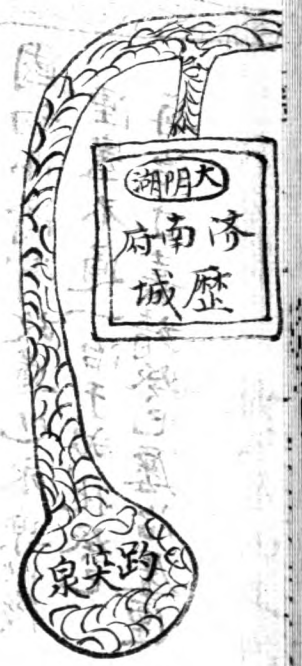 大明湖
济南府
歷城
趵突泉